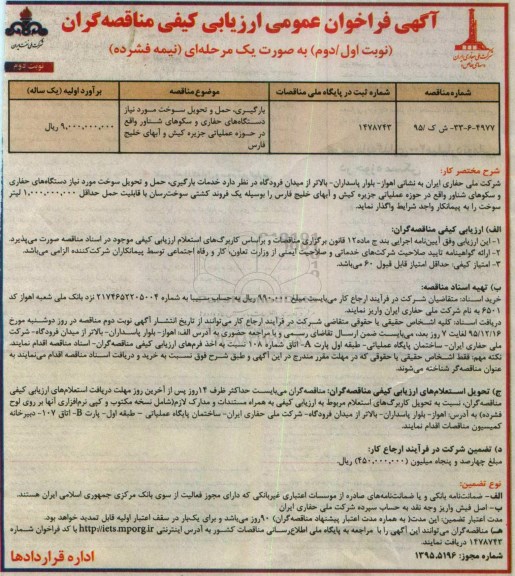 آگهی فراخوان عمومی ارزیابی کیفی مناقصه‌گران
(نوبت اول/دوم) به صورت یک مرحله‌ای (نیمه فشرده)
نوبت دوم
شماره مناقصه
شماره ثبت در پایگاه ملی مناقصات
موضوع مناقصه
برآورد اولیه (یک ساله)
۳۳-۶-۴۹۷۷- ش ک /۹۵
۱۴۷۸۷۴۳
بارگیری، حمل و تحویل سوخت مورد نیاز دستگاه‌های حفاری و سکوهای شناور واقع در حوزه عملیاتی جزیره کیش و آبهای خلیج فارس
۹,۰۰۰,۰۰۰,۰۰۰ ریال
شرح مختصر کار:
شرکت ملی حفاری ایران به نشانی اهواز- بلوار پاسداران- بالاتر از میدان فرودگاه در نظر دارد خدمات بارگیری، حمل و تحویل سوخت مورد نیاز دستگاه‌های حفاری
و سکوهای شناور واقع در حوزه عملیاتی جزیره کیش و آبهای خلیج فارس را بوسیله یک فروند کشتی سوخت‌رسان با قابلیت حمل حداقل ۱,۰۰۰,۰۰۰ لیتر
سوخت را به پیمانکار واجد شرایط واگذار نماید.
الف) ارزیابی کیفی مناقصه‌گران:
۱- این ارزیابی وفق آیین‌نامه اجرایی بند ج ماده۱۲ قانون برگزاری مناقصات و براساس کاربرگ‌های استعلام ارزیابی کیفی موجود در اسناد مناقصه صورت می‌پذیرد.
۲- ارائه گواهینامه تایید صلاحیت شرکت‌های خدماتی و صلاحیت ایمنی از وزارت تعاون، کار و رفاه اجتماعی توسط پیمانکاران شرکت‌کننده الزامی می‌باشد.
۳- امتیاز کیفی: حداقل امتیاز قابل قبول ۶۰ می‌باشد.
ب) تهیه اسناد مناقصه:
خرید اسناد: متقاضیان شرکت در فرآیند ارجاع کار می‌بایست مبلغ ۹۹۰,۰۰۰ ریال به حساب سیبا به شماره ۲۱۷۴۶۵۲۲۰۵۰۰۴ نزد بانک ملی شعبه اهواز کد
۶۵۰۱ به نام شرکت ملی حفاری ایران واریز نمایند.
دریافت اسناد: کلیه اشخاص حقیقی یا حقوقی متقاضی شرکت در فرآیند ارجاع کار می‌توانند از تاریخ انتشار آگهی نوبت دوم مناقصه در روز دوشنبه مورخ
۹۵/۱۲/۱۶ لغایت ۷ روز بعد، می‌بایست ضمن ارسال تقاضای رسمی و یا مراجعه حضوری به آدرس الف: اهواز- بلوار پاسداران- بالاتر از میدان فرودگاه- شرکت
ملی حفاری ایران- ساختمان پایگاه عملیاتی- طبقه اول پارت A- اتاق شماره ۱۰۸ نسبت به اخذ فرم‌های ارزیابی کیفی مناقصه‌گران- اسناد مناقصه اقدام نمایند.
نکته مهم: فقط اشخاص حقیقی یا حقوقی که در مهلت مقرر مندرج در این آگهی و طبق شرح فوق نسبت به خرید و دریافت اسناد مناقصه اقدام می‌نمایند به
عنوان مناقصه‌گر شناخته می‌شوند.
ج) تحویل استعلام‌های ارزیابی کیفی مناقصه‌گران: مناقصه‌گران می‌بایست حداکثر ظرف ۱۴روز پس از آخرین روز مهلت دریافت استعلام‌های ارزیابی کیفی
مناقصه‌گران، نسبت به تحویل کاربرگ‌های استعلام مربوط به ارزیابی کیفی به همراه مستندات و مدارک لازم(شامل نسخه مکتوب و کپی نرم‌افزاری آنها بر روی لوح
فشرده) به آدرس: اهواز- بلوار پاسداران- بالاتر از میدان فرودگاه- شرکت ملی حفاری ایران- ساختمان پایگاه عملیاتی - طبقه اول- پارت B- اتاق ۱۰۷- دبیرخانه
کمیسیون مناقصات اقدام نمایند.
د) تضمین شرکت در فرآیند ارجاع کار:
مبلغ چهارصد و پنجاه میلیون (۴۵۰,۰۰۰,۰۰۰) ریال.
نوع تضمین:
الف- ضمانت‌نامه بانکی و یا ضمانت‌نامه‌های صادره از موسسات اعتباری غیربانکی که دارای مجوز فعالیت از سوی بانک مرکزی جمهوری اسلامی ایران هستند.
ب- اصل فیش واریز وجه نقد به حساب سپرده شرکت ملی حفاری ایران
مدت اعتبار تضمین: این مدت( به همراه مدت اعتبار پیشنهاد مناقصه‌گران) ۹۰روز می‌باشد و برای یک‌بار در سقف اعتبار اولیه قابل تمدید خواهد بود.
هـ) مناقصه‌گران می‌توانند این آگهی را با مراجعه به پایگاه ملی اطلاع‌رسانی مناقصات کشور به آدرس اینترنتی http://iets.mporg.ir با کد فراخوان شماره
۱۴۷۸۷۴۳ دریافت نمایند.
شماره مجوز: ۱۳۹۵.۵۱۹۶
اداره قراردادها